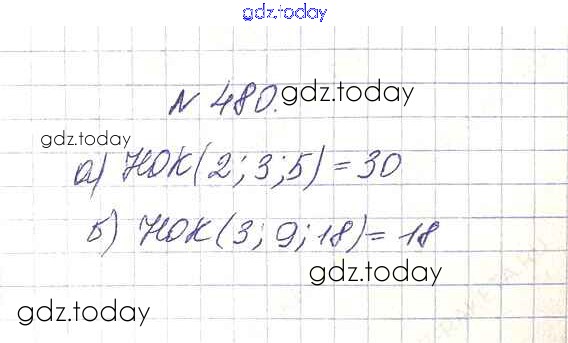 gdz.today
№ 480. gdz.today
gdz.today
а) НОК(2; 3; 5) = 30
б) НОК(3; 9; 18) = 18
gdz.today
gdz.today